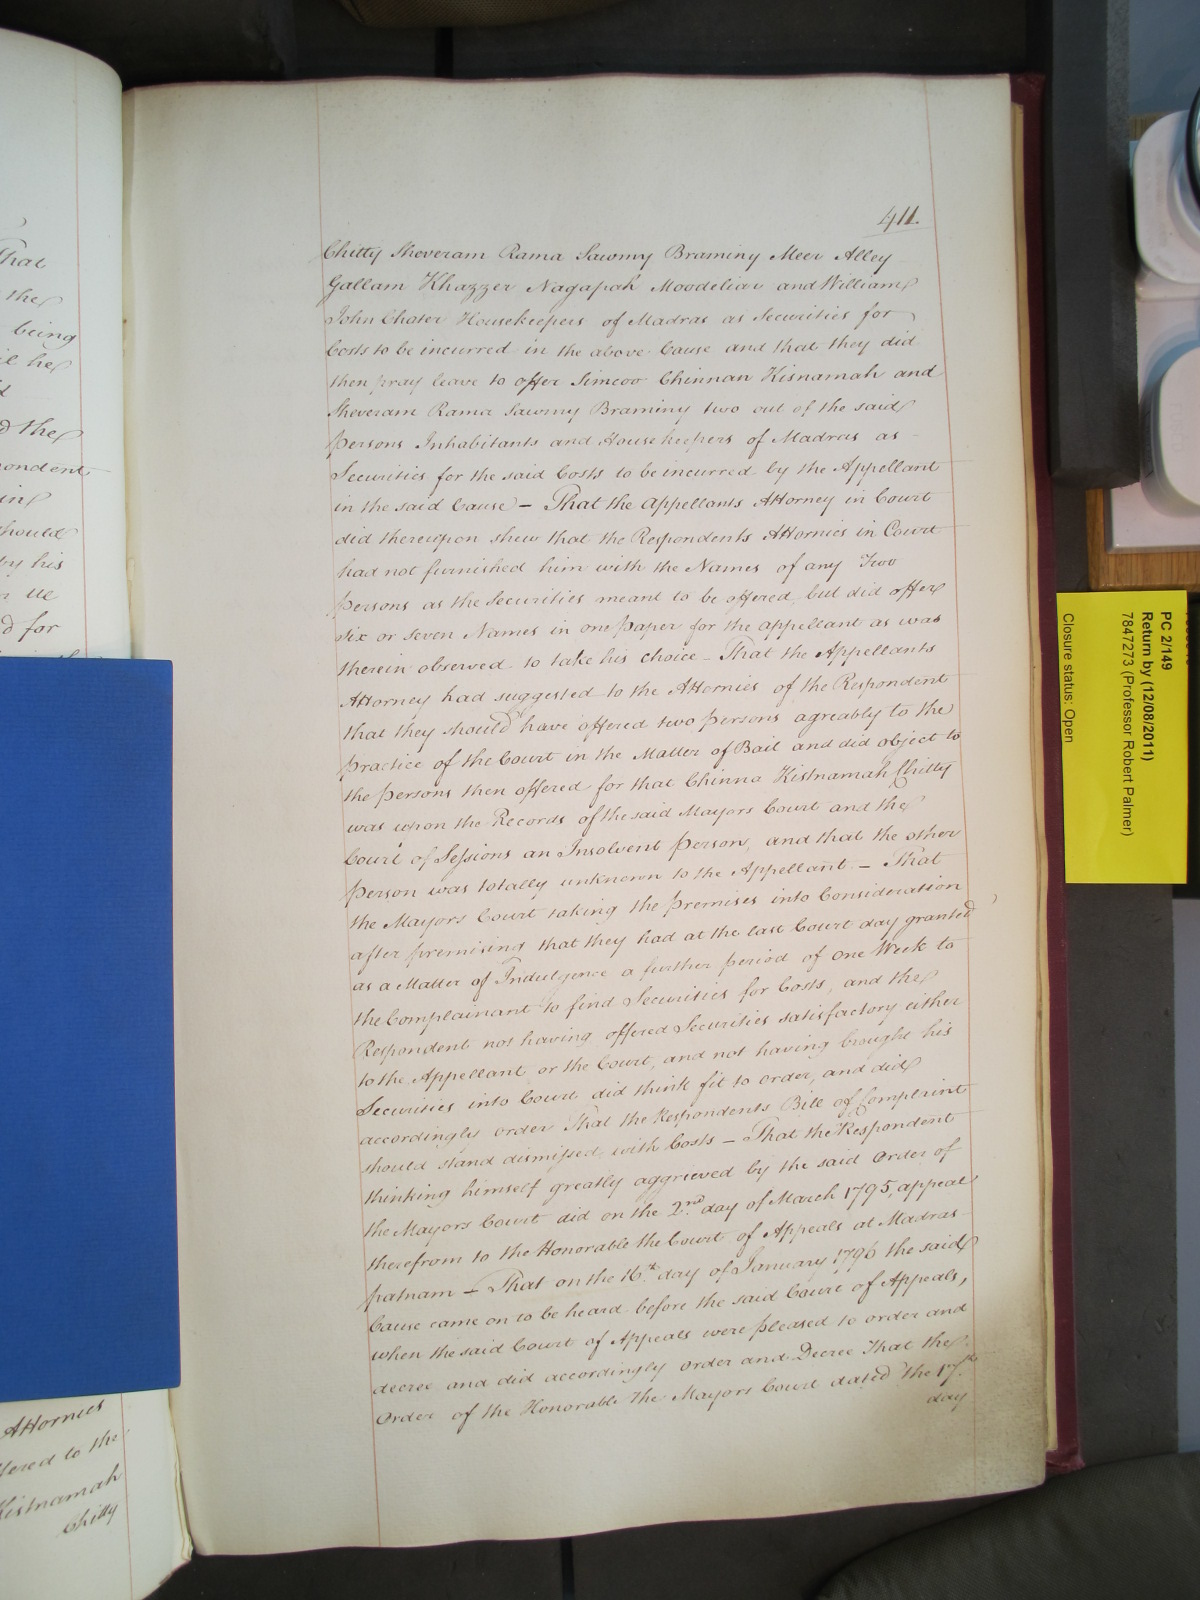 That
the
being
he
d the
pondent
in
should
by his
ue
d for
Attornies
fered to the
Kistnamah
Chitty
411.
Chitty Sheveram Rama Sawmy Braminy Meer Alley
Gallam Khazzer Nagapah Moodeliar and William
John Chater Housekeepers of Madras as Securities for
Costs to be incurred in the above Cause and that they did
then pray leave to offer Simcoo Chinnan Kisnamah and
Sheveram Rama Sawmy Braminy two out of the said
persons Inhabitants and Housekeepers of Madras as -
Securities for the said Costs to be incurred by the Appellant
in the said Cause - That the Appellants Attorney in Court
did thereupon shew that the Respondents Attornies in Court
had not furnished him with the Names of any Two
persons as the Securities meant to be offered, but did offer
six or seven Names in one paper for the appellant as was
therein observed to take his choice - That the Appellants
Attorney had suggested to the Attornies of the Respondent
that they should have offered two persons agreably to the
practice of the Court in the Matter of Bail and did object to
the persons then offered for that Chinna Kistnamah Chitty
was upon the Records of the said Mayors Court and the
Court of Sessions an Insolvent person, and that the other
person was totally unknown to the Appellant. - That
the Mayors Court taking the premises into Consideration
after premising that they had at the last Court day granted
as a Matter of Indulgence a further period of one Week to
the Complainant to find Securities for Costs, and the
Respondent not having offered Securities satisfactory either
to the Appellant or the Court, and not having brought his
Securities into Court did think fit to order, and did
accordingly order That the Respondents Bill of Complaint
should stand dismissed with Costs - That the Respondent
thinking himself greatly aggrieved by the said Order of
the Mayors Court did on the 2nd day of March 1795, appeal
therefrom to the Honorable the Court of Appeals at Madras
patnam - That on the 16th day of January 1796 the said
Cause came on to be heard before the said Court of Appeals,
when the said Court of Appeals were pleased to order and
decree and did accordingly order and Decree That the
Order of the Honorable the Mayors Court dated the 17th
day
PC 2/149
Return by (12/08/2011)
7847273 (Professor Robert Palmer)
Closure status: Open